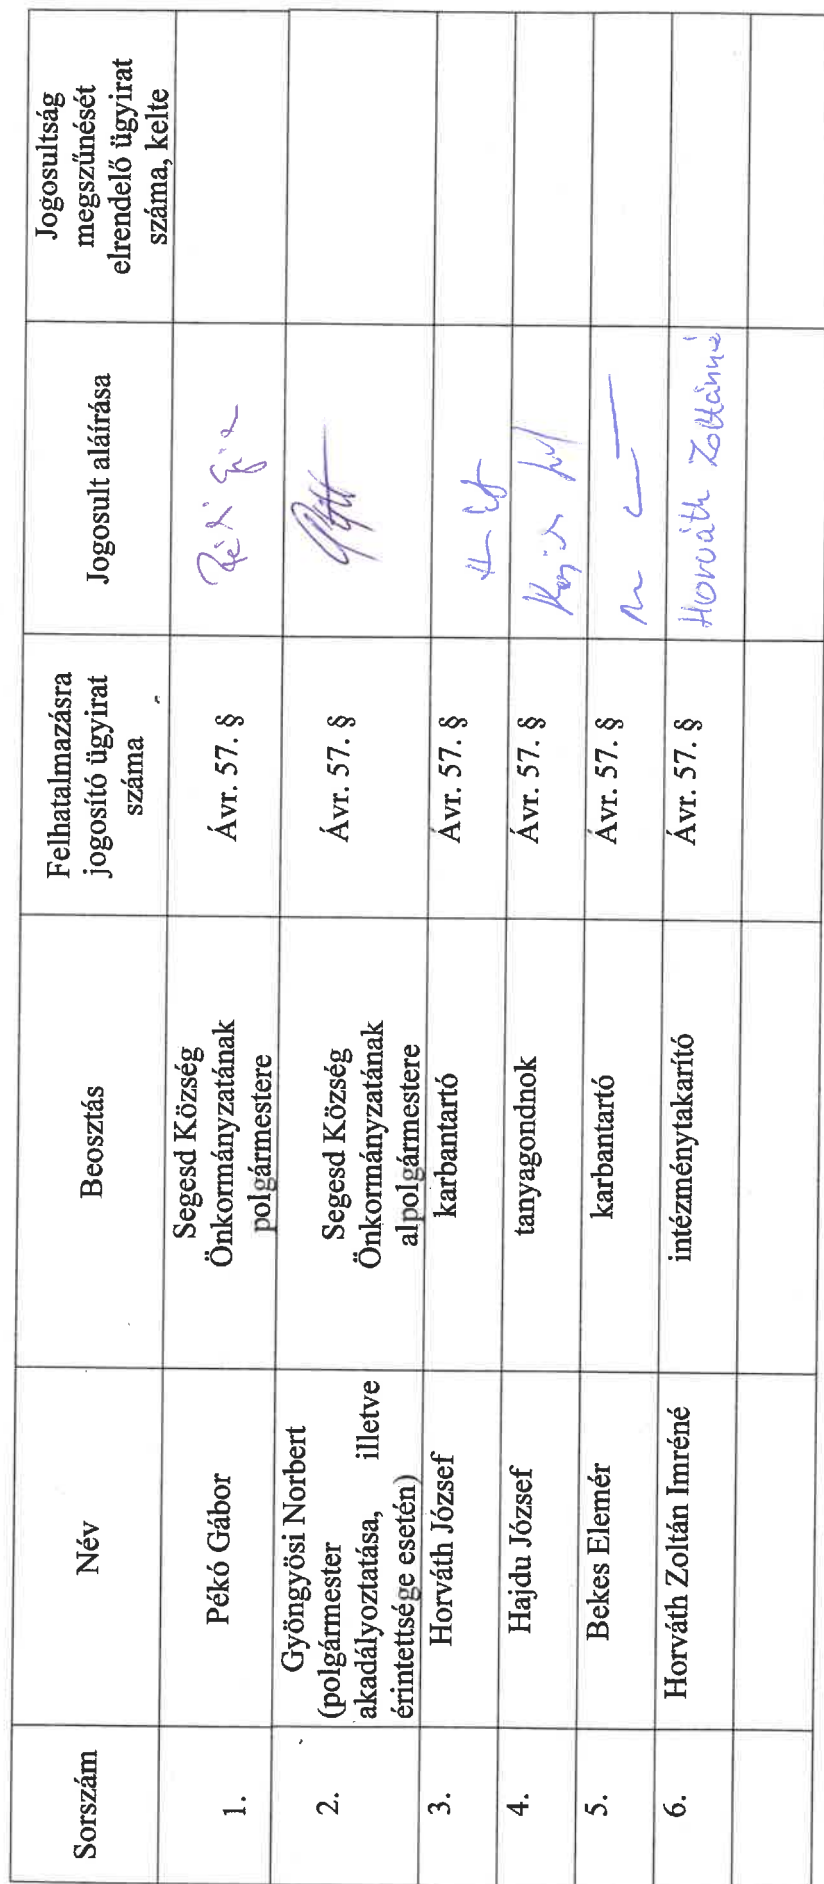 Sorszám
Név
Beosztás
Felhatalmazásra
jogosító ügyirat
száma
Jogosult aláírása
Jogosultság
megszűnését
elrendelő ügyirat
száma, kelte
1.
Pékó Gábor
Segesd Község
Önkormányzatának
polgármestere
Ávr. 57. §
2.
Gyöngyösi Norbert
(polgármester
akadályoztatása, illetve
érintettsége esetén)
Segesd Község
Önkormányzatának
alpolgármestere
Ávr. 57. §
3.
Horváth József
karbantartó
Ávr. 57. §
4.
Hajdu József
tanyagondnok
Ávr. 57. §
5.
Bekes Elemér
karbantartó
Ávr. 57. §
6.
Horváth Zoltán Imréné
intézménytakarító
Ávr. 57. §
Horváth Zoltánné